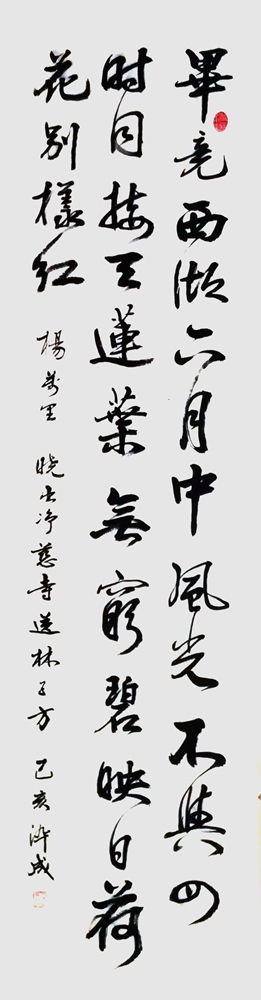 畢竟西湖六月中風光不與四
时同接天蓮葉無窮碧映日荷
花别樣紅
楊萬里 曉出净慈寺送林子方 己亥 成